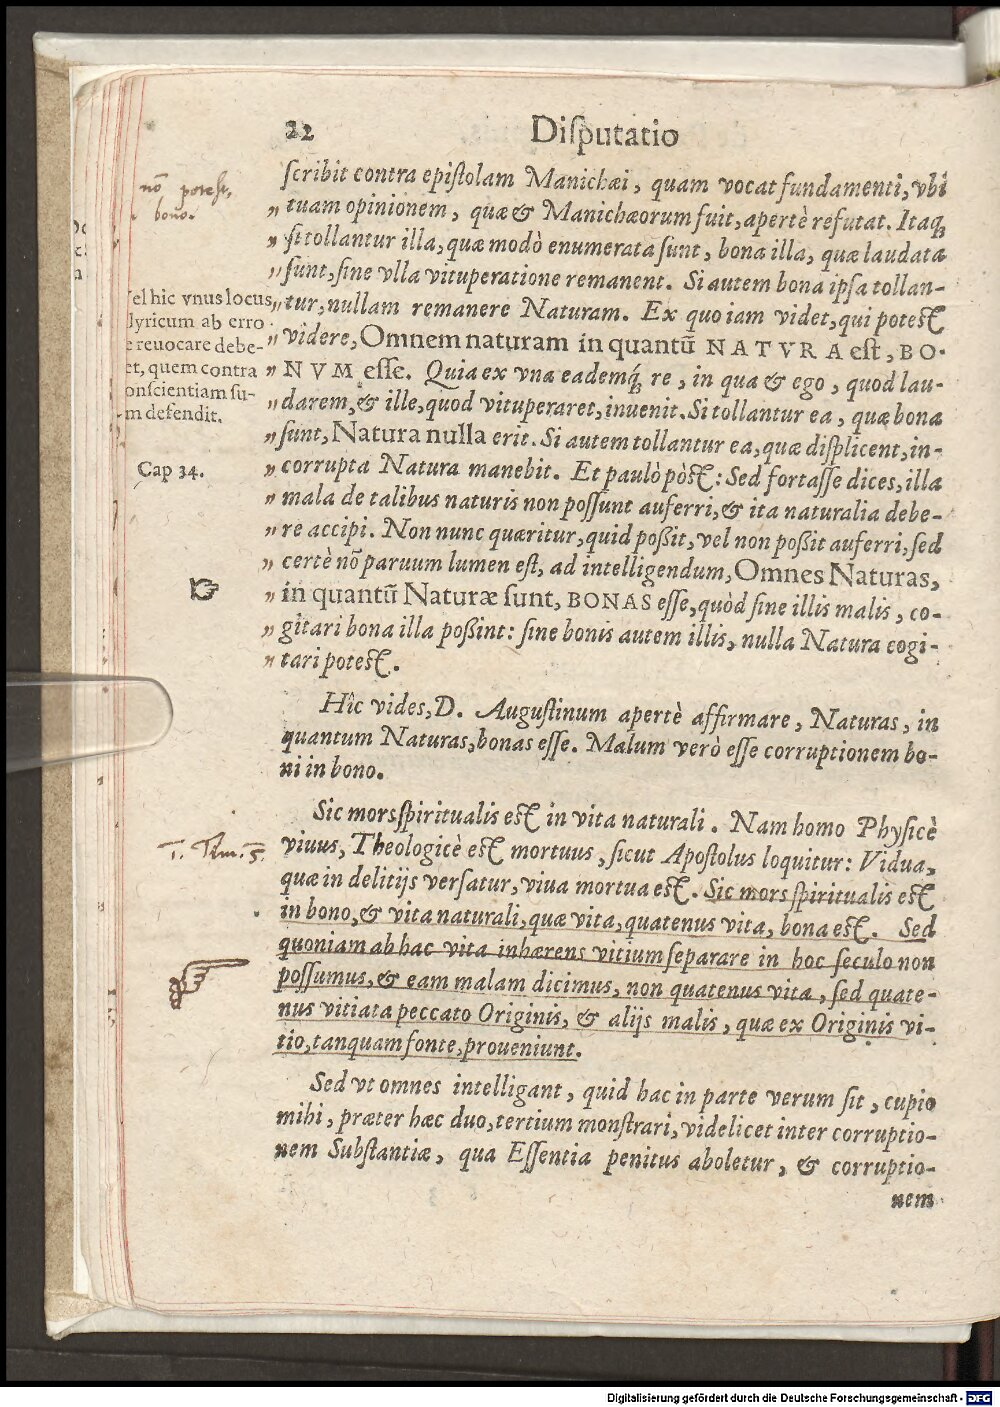 22 Disputatio
ſcribit contra epiſtolam Manichæi, quam vocat fundamenti, vbi
„ tuam opinionem, quæ & Manichæorum fuit, apertè refutat. Itaq;
„ ſi tollantur illa, quæ modò enumerata ſunt, bona illa, quæ laudata
„ ſunt, ſine vlla vituperatione remanent. Si autem bona ipſa tollan-
„ tur, nullam remanere Naturam. Ex quo iam videt, qui poteſt
„ videre, Omnem naturam in quantũ NATVRA eſt, BO-
„ NVM eſſe. Quia ex vna eademq́; re, in qua & ego, quod lau-
„ darem, & ille, quod vituperaret, inuenit. Si tollantur ea, quæ bona
„ ſunt, Natura nulla erit. Si autem tollantur ea, quæ diſplicent, in-
„ corrupta Natura manebit. Et paulò pòſt: Sed fortaſſe dices, illa
„ mala de talibus naturis non poſſunt auferri, & ita naturalia debe-
„ re accipi. Non nunc quæritur, quid poßit, vel non poßit auferri, ſed
„ certè nõ paruum lumen eſt, ad intelligendum, Omnes Naturas,
„ in quantũ Naturæ ſunt, BONAS eſſe, quòd ſine illis malis, co-
„ gitari bona illa poßint: ſine bonis autem illis, nulla Natura cogi-
„ tari poteſt.
nõ poteſt,
bono.
el hic vnus locus
lyricum ab erro
e reuocare debe-
et, quem contra
onſcientiam ſu-
m defendit.
Cap 34.
Hîc vides, D. Auguſtinum apertè affirmare, Naturas, in
quantum Naturas, bonas eſſe. Malum verò eſſe corruptionem bo-
ni in bono.
Sic mors ſpiritualis eſt in vita naturali. Nam homo Phyſicè
viuus, Theologicè eſt mortuus, ſicut Apoſtolus loquitur: Vidua,
quæ in delitijs verſatur, viua mortua eſt. Sic mors ſpiritualis eſt
in bono, & vita naturali, quæ vita, quatenus vita, bona eſt. Sed
quoniam ab hac vita inhærens vitium ſeparare in hoc ſeculo non
poſſumus, & eam malam dicimus, non quatenus vita, ſed quate-
nus vitiata peccato Originis, & alijs malis, quæ ex Originis vi-
tio, tanquam fonte, proueniunt.
1. Tim. 5.
Sed vt omnes intelligant, quid hac in parte verum ſit, cupio
mihi, præter hæc duo, tertium monſtrari, videlicet inter corruptio-
nem Subſtantiæ, qua Eſſentia penitus aboletur, & corruptio-
nem
Digitalisierung gefördert durch die Deutsche Forschungsgemeinschaft - DFG